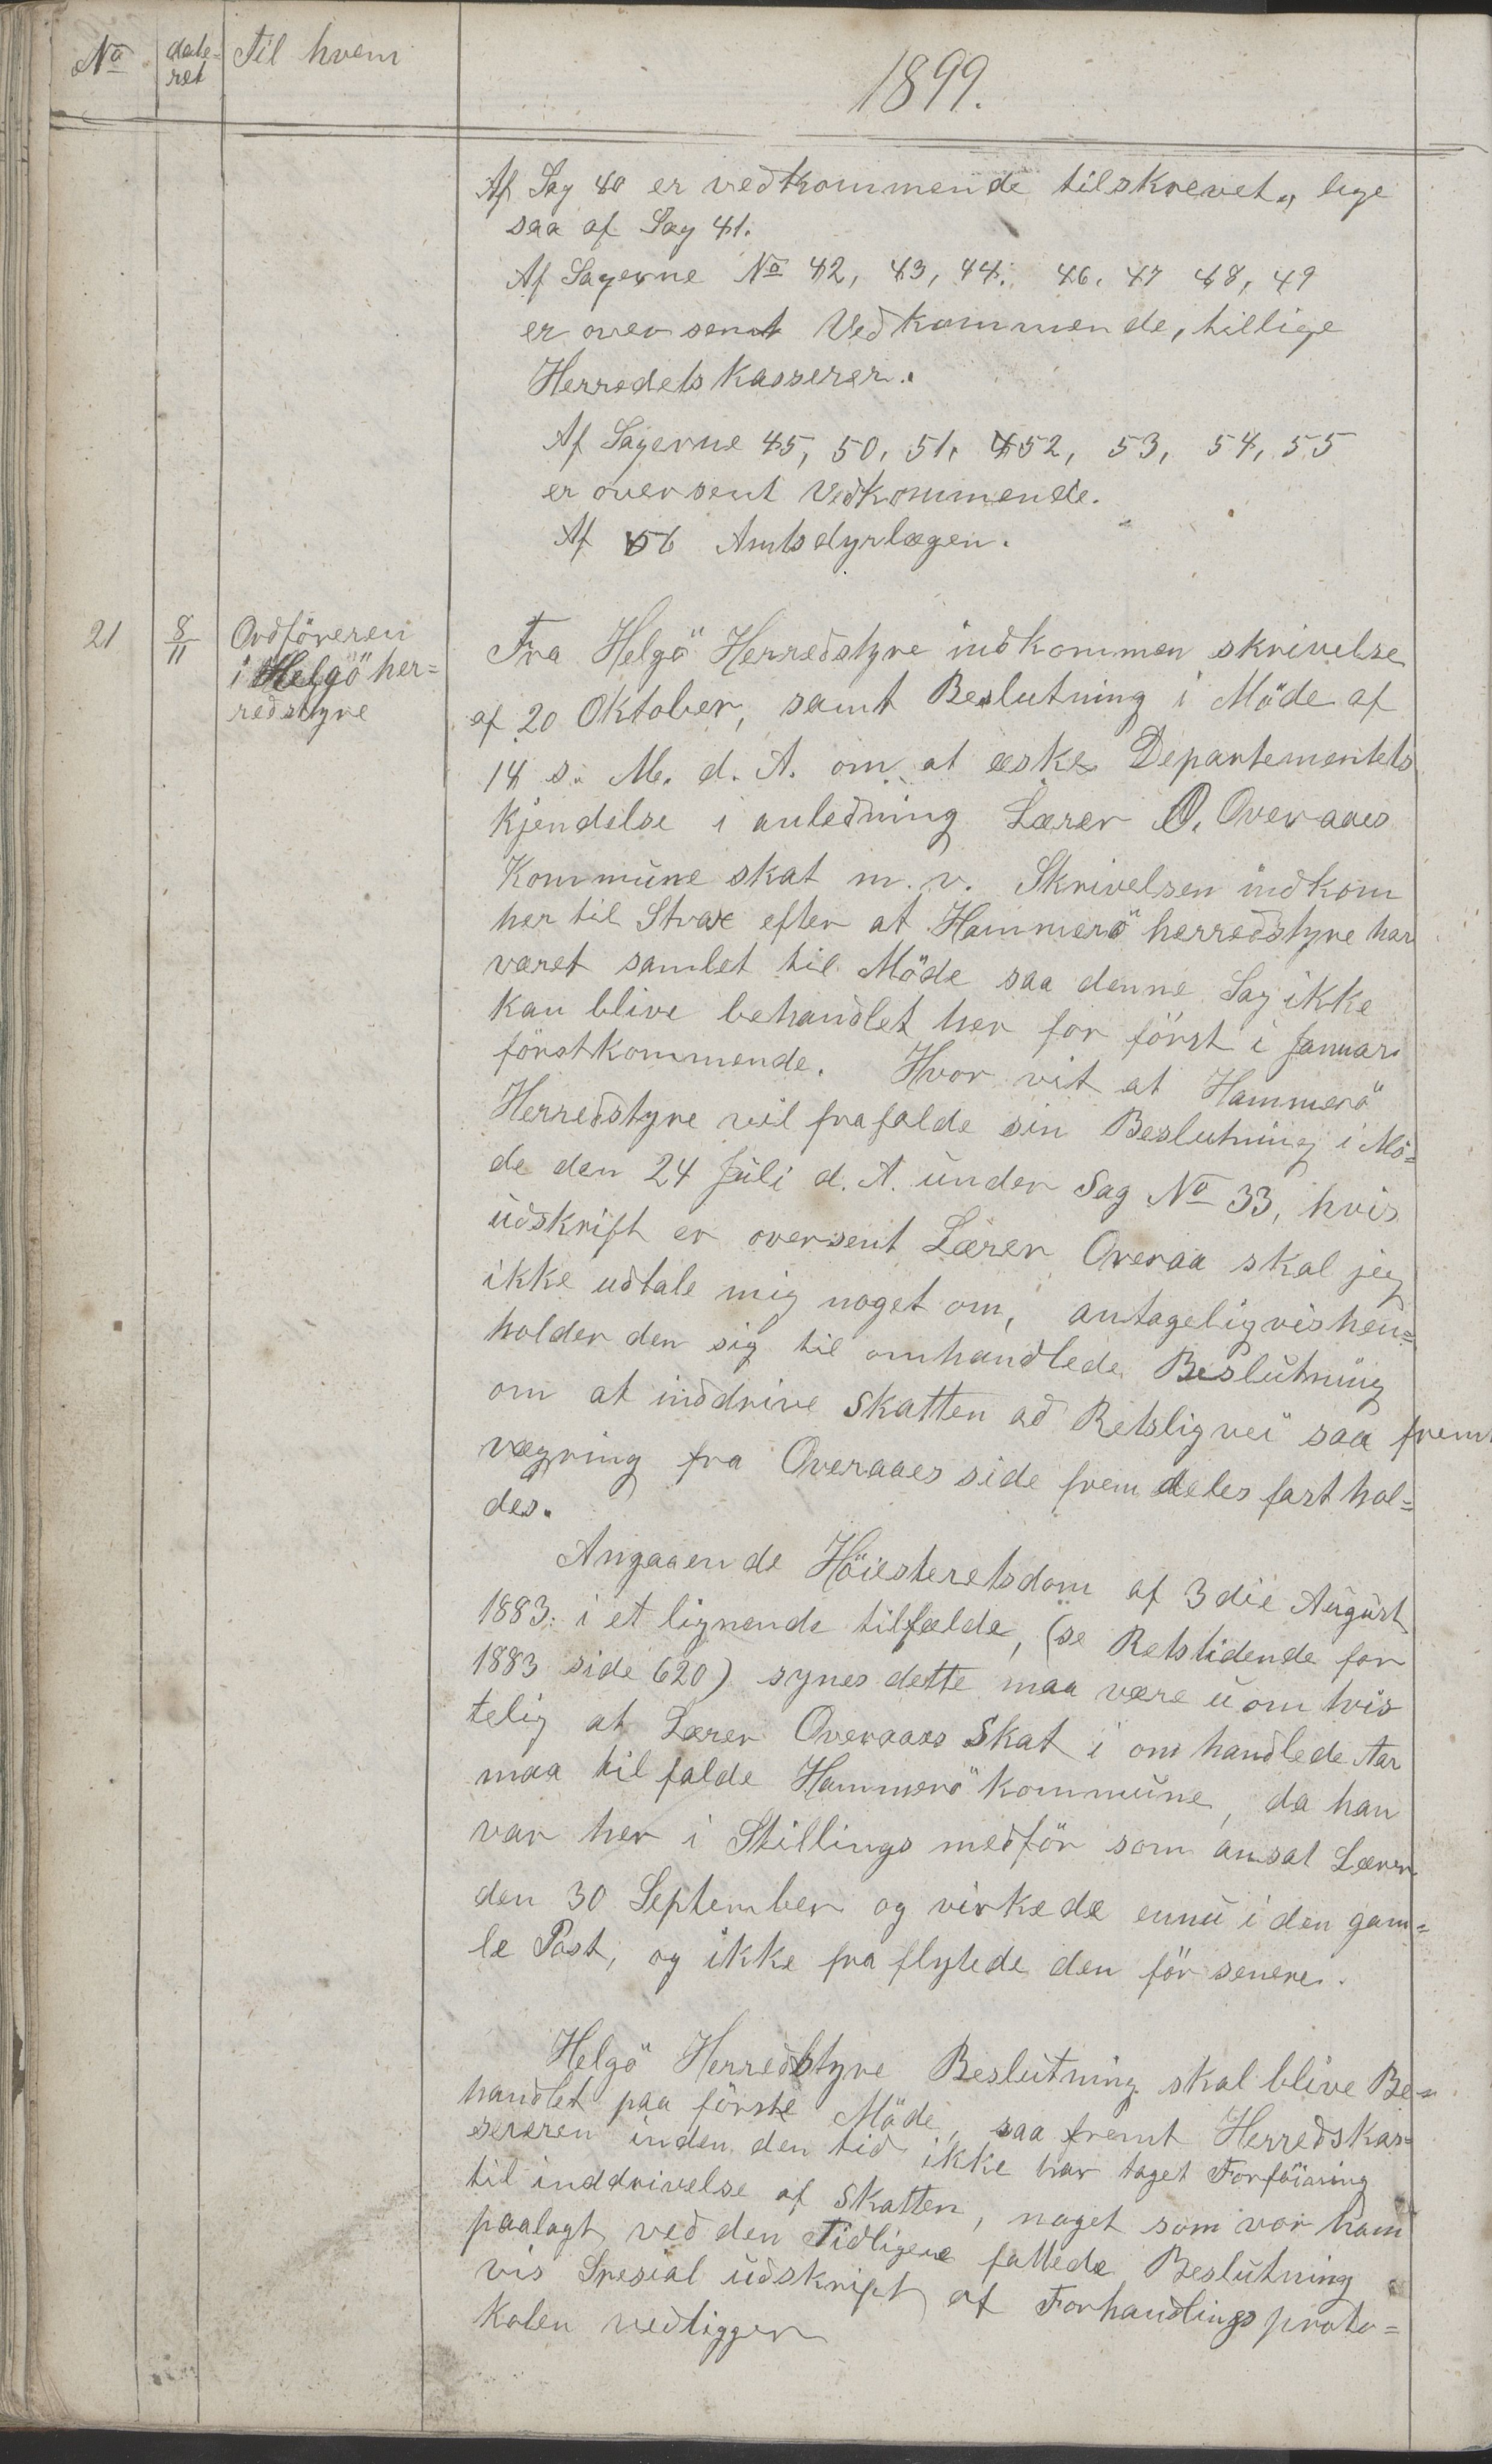 No
date=
ret
Til hvem
1899.
Af Sag 40 er vedkommende tilskrevet, lige
saa af Sag 41.
Af Sagerne No 42, 43, 44. 46. 47 48, 49
er oversent Vedkommende, tillige
Herredets kasserer.
Af Sagerne 45, 50, 51, 52, 53, 54, 55
er oversent Vedkommende.
Af 56 Amtsdyrlægen.
21
8/11
Ordföreren
i Helgö her=
redstyre
Fra Helgö Herredstyre indkommen skrivelse
af 20 Oktober, samt Beslutning i Möde af
14 s. M. d. A. om at æske Departementets
Kjendelse i anledning Lærer O. Overaaes
Kommune skat m. v. Skrivelsen indkom
her til Strax efter at Hammerö herredstyre har
været samlet til Möde saa denne Sag ikke
kan blive behandlet her for först i Januar
förstkommende. Hvor vit at Hammerö
Herredstyre vil frafalde sin Beslutning i Mö=
de den 24 Juli d. A. under Sag No 33, hvis
udskrift er oversent Lærer Overaa skal jeg
ikke udtale mig noget om, antageligvis hen=
holder den sig til omhandlede Beslutning
om at inddrive Skatten ad Retslig vei saa fremt
vægring fra Overaaes side frem deles fast hol=
des.
Angaaende Höiesteretsdom af 3die August
1883. i et lignende tilfælde, (se Retstidende for
1883 side 620) synes dette maa være uom tvis
telig at Lærer Overaaes Skat i om handlede Aar
maa til falde Hammerö kommune, da han
var her i Stillings medför som ansat Lærer
den 30 September og virkede ennu i den gam=
le Post, og ikke fra flytede den för senere.
Helgö Herredstyre Beslutning skal blive Be=
handlet paa förste Möde, saa fremt Herredskas=
sereren inden den tid ikke har taget Forföining
til inddrivelse af Skatten, noget som var ham
paalagt ved den Tidligere fattede Beslutning
vis Spesial udskript af Forhandlings proto=
kolen vedligger